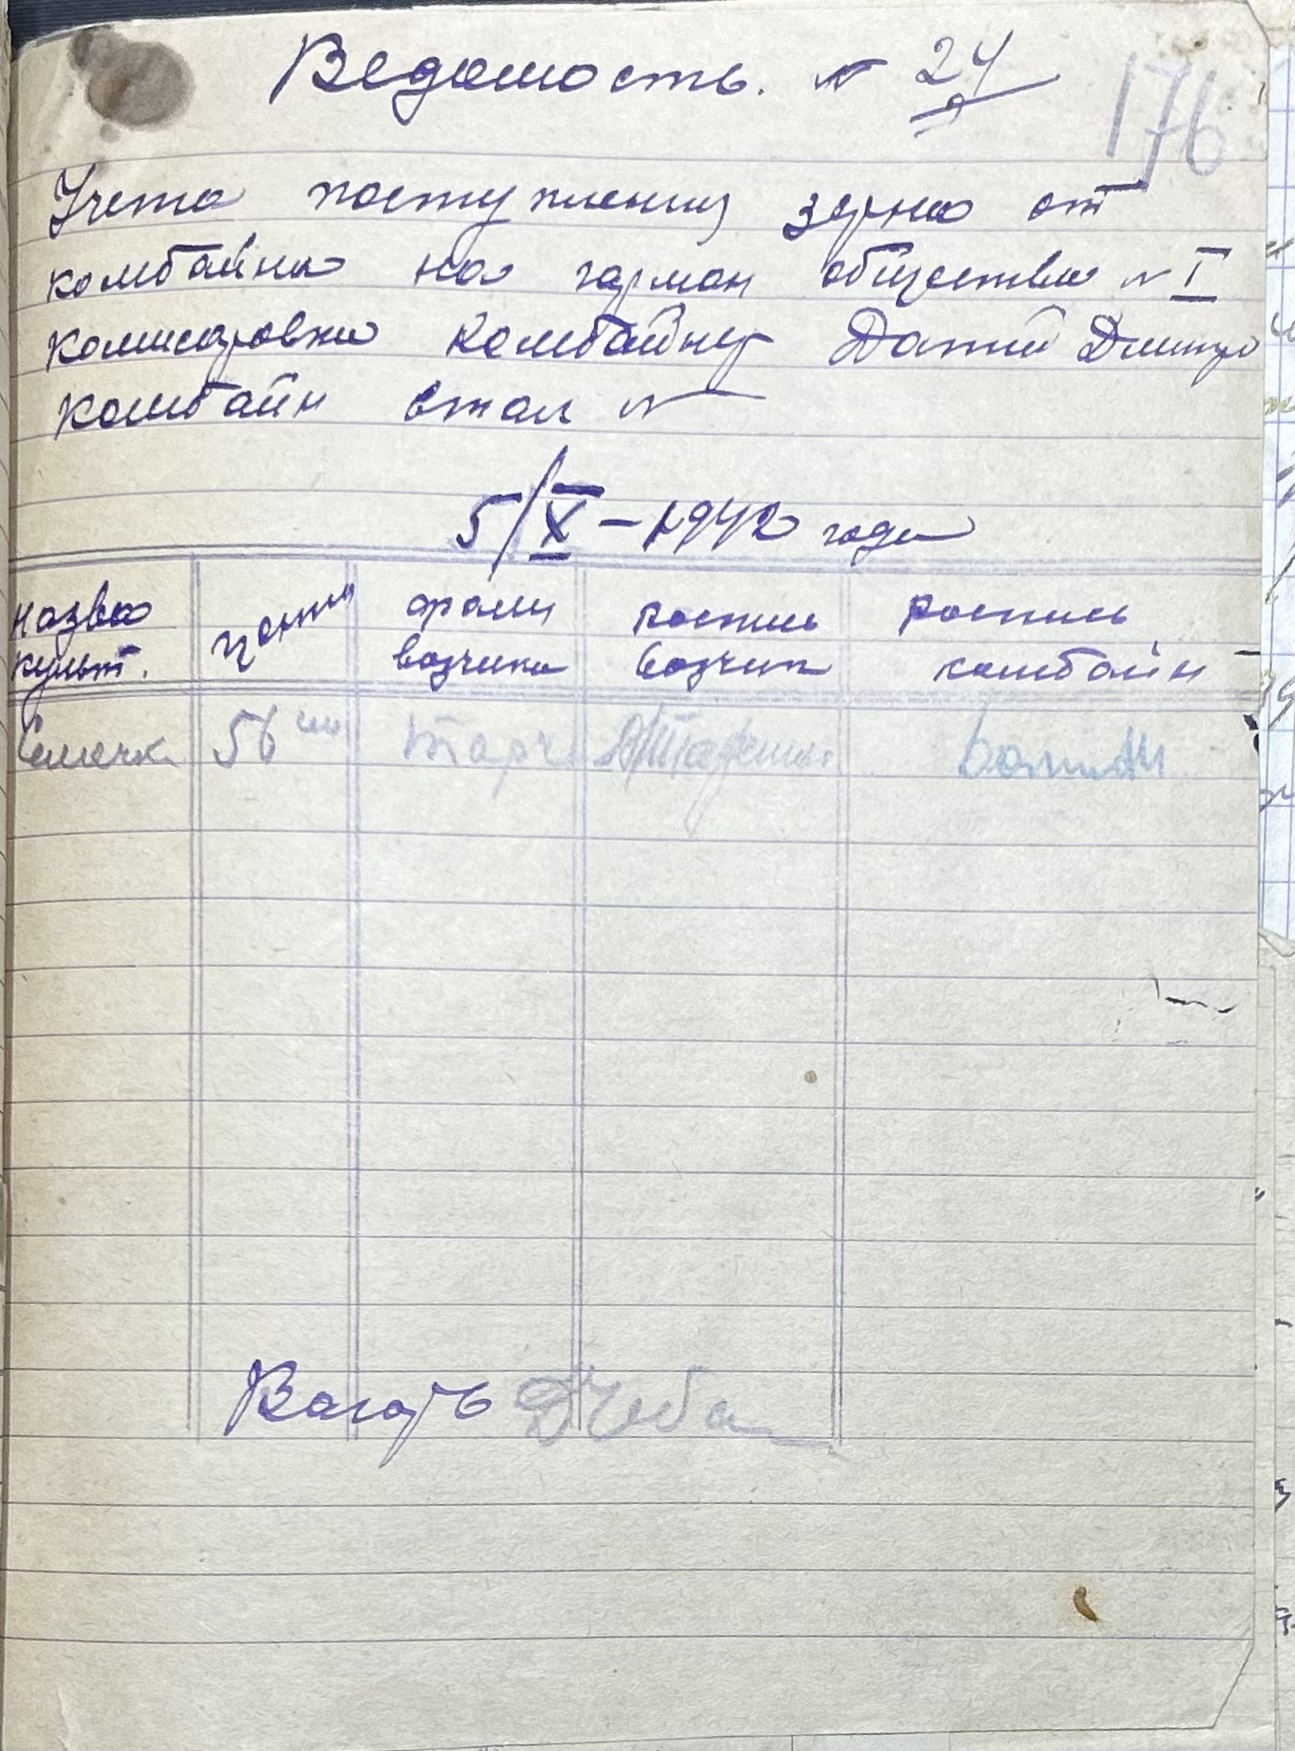 Ведомость. № 24
176
Учета поступления зерна от
комбайна на гарман общества № I
комисаровка комбайнер Дмитр
комбайн стал №
5/X – 1942 года
назва культ.
центн
фами возчика
роспись возчик
роспись комбайн
Семечка 56
Вагарь Д Чеба